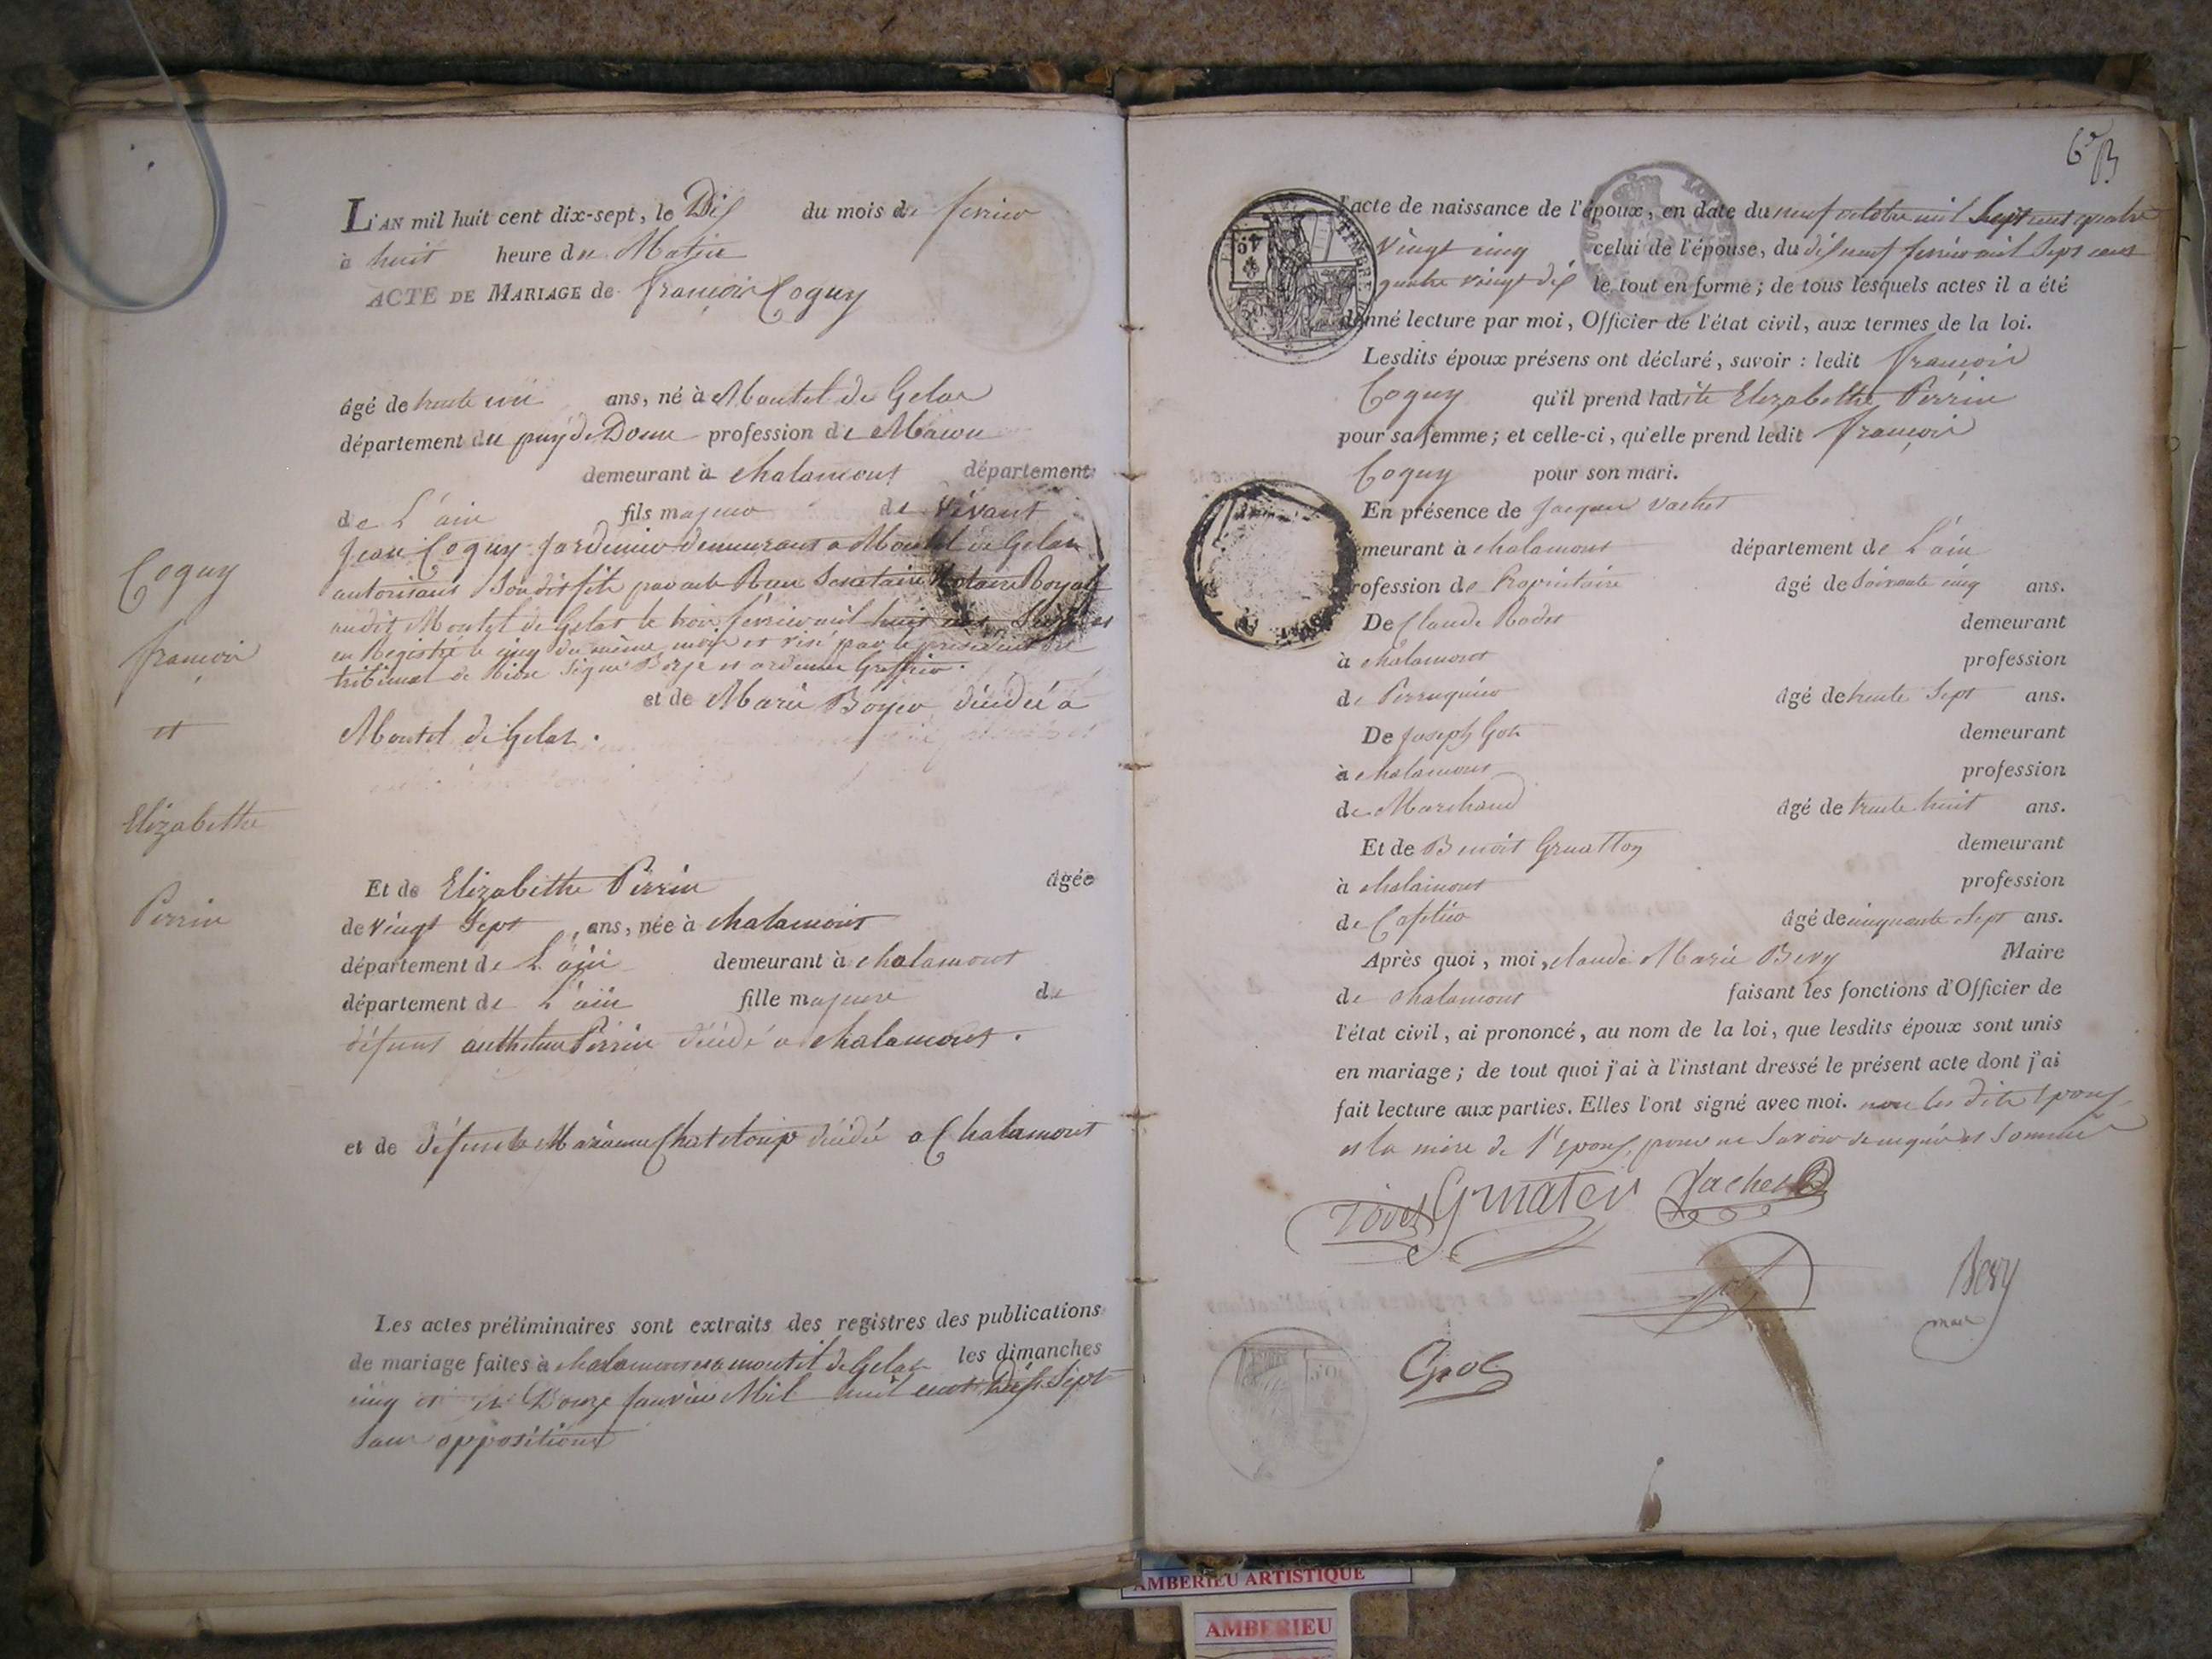 Coguy
françois
et
Elizabethe
Perrin
L'AN mil huit cent dix-sept, le Dix du mois de fevrier
à huit heure du Matin
ACTE DE MARIAGE de françois Coguy
âgé de trente un ans, né à Montel de Gelas
département du puy de Dome profession de Macon
demeurant à chalamont département
de L'ain fils majeur de vivant
Jean Coguy Jardinier demeurant a Montel de Gelas
autorisant Son dit fils par acte Notaire Royal
audit Montel de Gelat le trois fevrier mil huit cent
en Registré le cinq du même mois et visé par le president du
tribunal de Riom Signé et greffier.
et de Marie Boyer décédée a
Montel de Gelas.
Et de Elizabethe Perrin âgée
de vingt Sept ans, née à chalamont
département de L'ain demeurant à chalamont
département de L'ain fille majeure de
défunt anthelme Perrin décédé a chalamont.
et de défunte Marianne Chateloup décédée a Chalamont
Les actes préliminaires sont extraits des registres des publications
de mariage faites à chalamont et a montel de Gelas les dimanches
cinq et Douze Janvier Mil huit cent Dix Sept
Sans oppositions
6e B
l'acte de naissance de l'époux, en date du neuf octobre mil Sept cent quatre
vingt cinq celui de l'épouse, du dix neuf fevrier mil Sept cent
quatre vingt dix le tout en forme ; de tous lesquels actes il a été
donné lecture par moi, Officier de l'état civil, aux termes de la loi.
Lesdits époux présens ont déclaré, savoir : ledit françois
Coguy qu'il prend ladite Elizabethe Perrin
pour sa femme ; et celle-ci, qu'elle prend ledit françois
Coguy pour son mari.
En présence de Jacques Vachet
demeurant à chalamont département de L'ain
profession de Propriétaire âgé de Soixante cinq ans.
De Claude Rodet demeurant
à chalamont profession
de Perruquier âgé de trente Sept ans.
De Joseph Got demeurant
à chalamont profession
de Marchand âgé de trente huit ans.
Et de Benoit Gruatton demeurant
à chalamont profession
de Cafetier âgé de cinquante Sept ans.
Après quoi, moi, claude Marie Bevy Maire
de chalamont faisant les fonctions d'Officier de
l'état civil, ai prononcé, au nom de la loi, que lesdits époux sont unis
en mariage ; de tout quoi j'ai à l'instant dressé le présent acte dont j'ai
fait lecture aux parties. Elles l'ont signé avec moi. non les dits Epoux
et la mère de l'epoux, pour ne Savoir de ce requis et Sommés
Gruater Vachet
Bevy
maire
AMBERIEU ARTISTIQUE
AMBERIEU